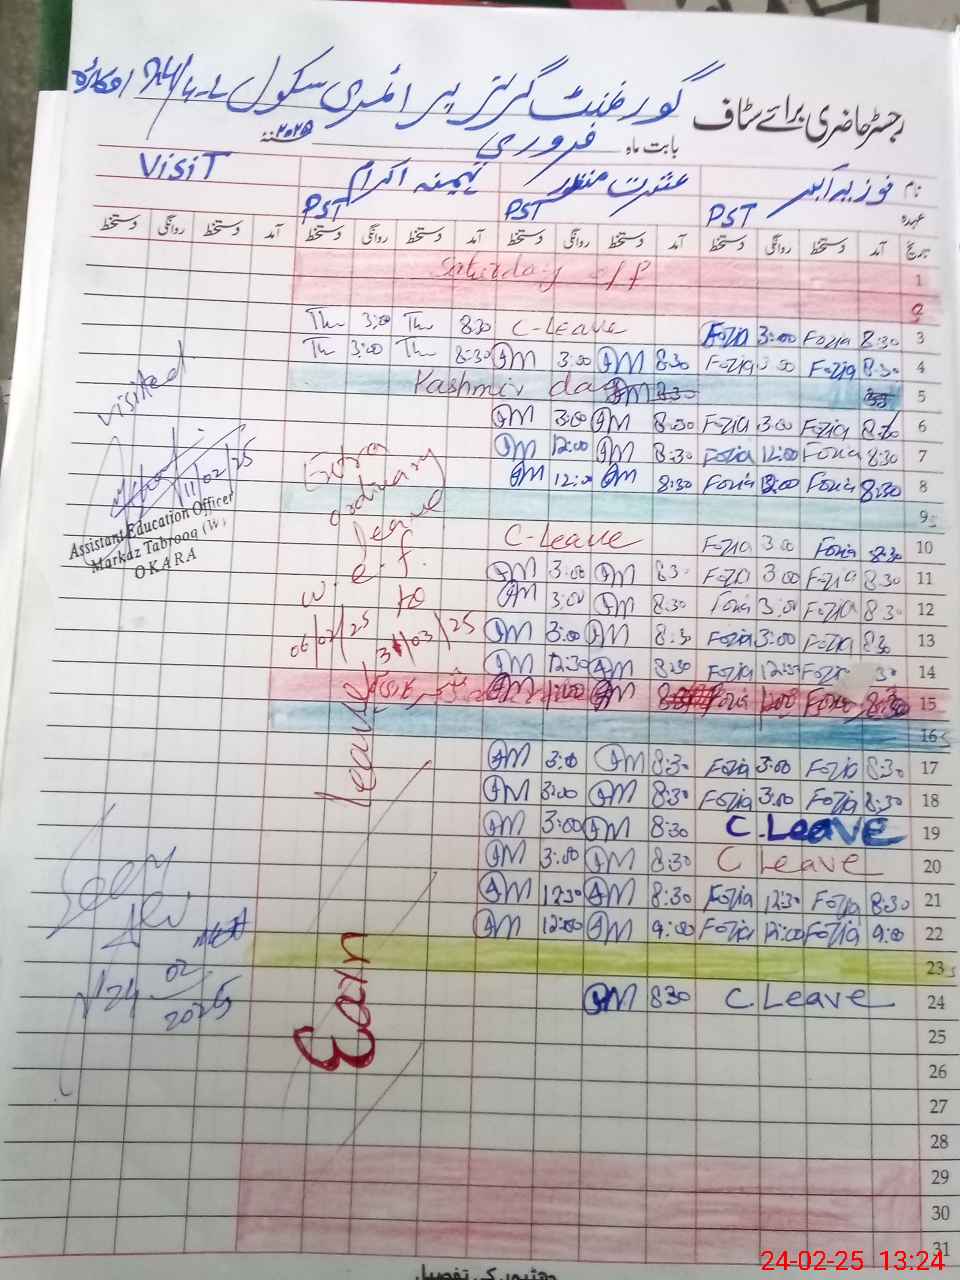 گورنمنٹ گرلز پرائمری سکول
اوکاڑہ
رجسٹر حاضری برائے سٹاف
بابت ماہ فروری ۲۰۲۵
نام منظور تہمینہ اکرم VISIT
عہدہ PST PST PST
تاریخ آمد دستخط روانگی دستخط آمد دستخط روانگی دستخط آمد دستخط روانگی دستخط آمد دستخط روانگی دستخط
1 Saturday off
2
3 8:30 Fozia 3:00 Fozia C-Leave 8:30 3:00
4 8:30 Fozia 3:00 Fozia 8:30 AM 3:00 AM 8:30 3:00
5 Kashmir day
6 8:30 Fozia 3:00 Fozia 8:30 AM 3:00 AM
7 8:30 Fozia 12:00 Fozia 8:30 AM 12:00 AM
8 8:30 Fozia 12:00 Fozia 8:30 AM 12:00 AM
9
10 8:30 Fozia 3:00 Fozia C-Leave
11 8:30 Fozia 3:00 Fozia 8:30 AM 3:00 AM
12 8:30 Fozia 3:00 Fozia 8:30 AM 3:00 AM
13 8:30 Fozia 3:00 Fozia 8:30 AM 3:00 AM
14 30 Fozia 12:30 Fozia 8:30 AM 12:30 AM
15 8:30 Fozia Fozia AM AM
16
17 8:30 Fozia 3:00 Fozia 8:30 AM 3:00 AM
18 8:30 Fozia 3:00 Fozia 8:30 AM 3:00 AM
19 C. Leave 8:30 AM 3:00 AM
20 C Leave 8:30 AM 3:00 AM
21 8:30 Fozia 12:30 Fozia 8:30 AM 12:30 AM
22 9:00 Fozia 12:00 Fozia 9:00 AM 12:00 AM
23
24 C. Leave 8:30 AM
25
26
27
28
29
30
31
Extra
ordinary
leave
w.e.f.
06/02/25 to
31/03/25
leave
visited
11/02/25
Assistant Education Officer
Markaz Tabrooq (W)
OKARA
Seen
24
02
2025
چھٹیوں کی تفصیل
24-02-25 13:24